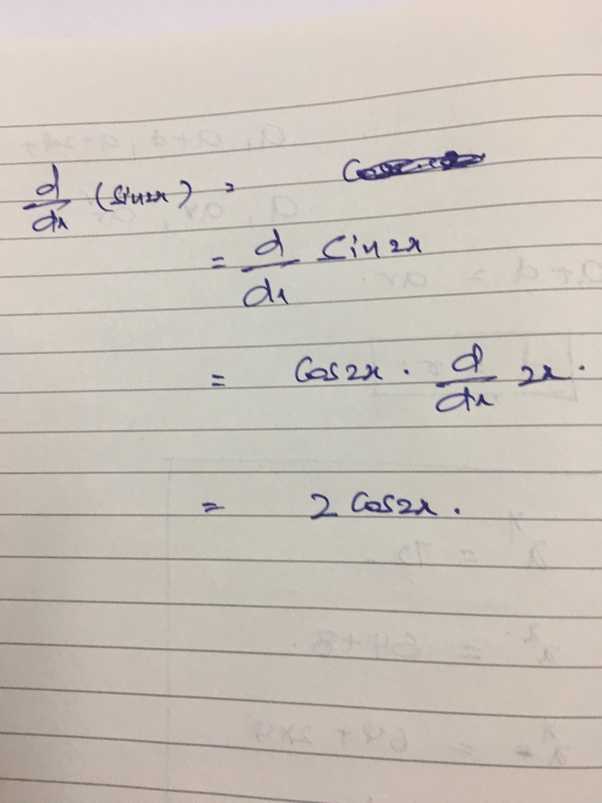 d/dx (sin2x) =
= d/dx sin 2x
= Cos2x · d/dx 2x.
= 2 Cos2x.